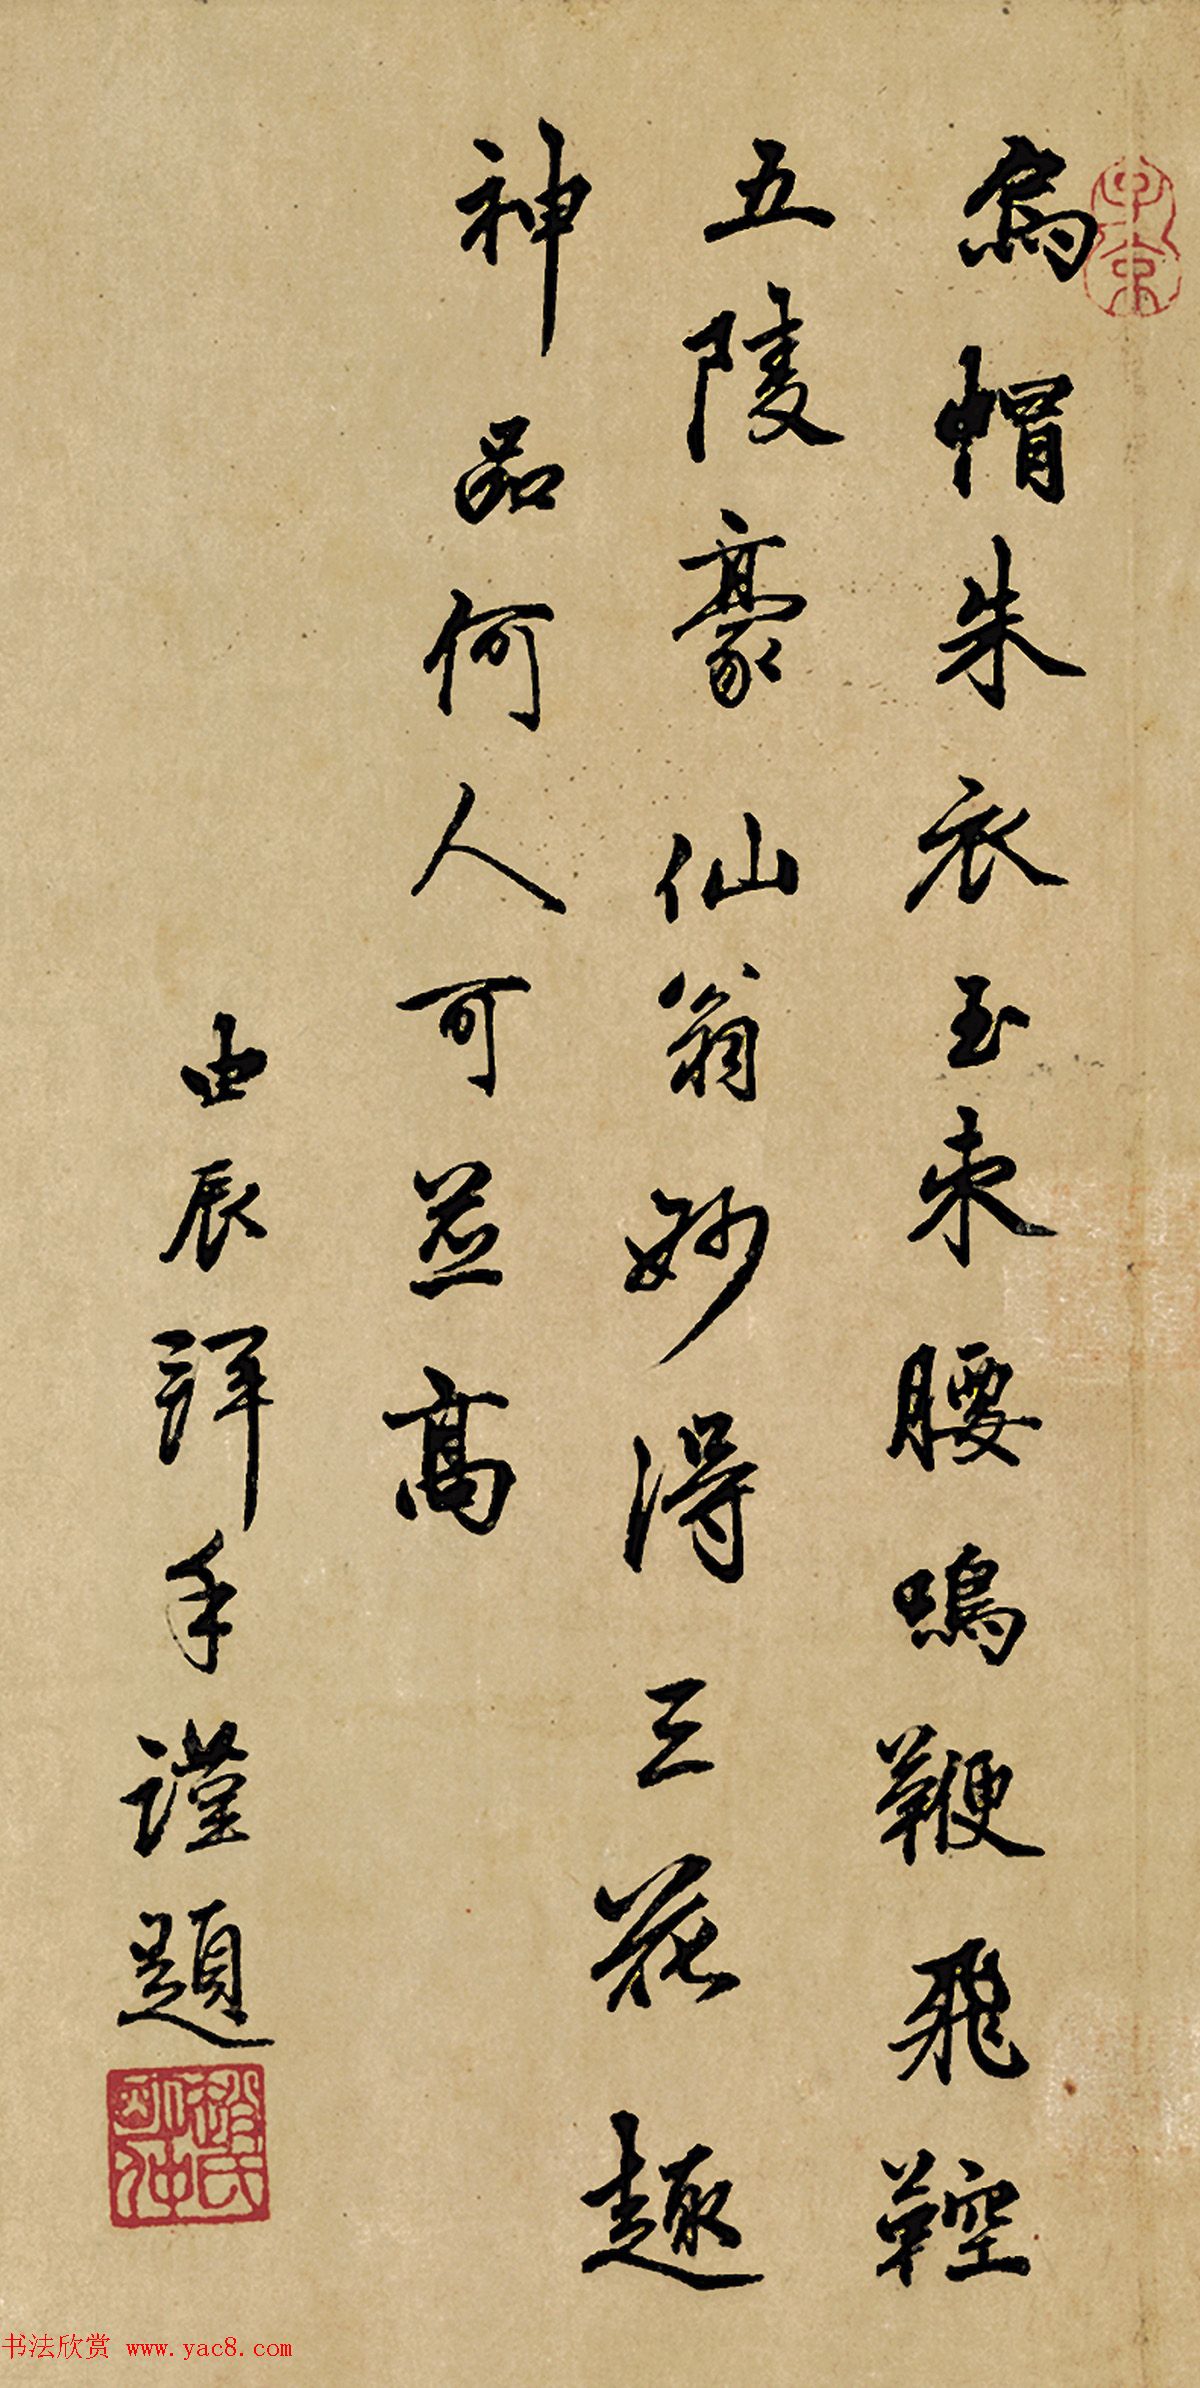 烏帽朱衣玉束腰鳴鞭飛鞚
五陵豪仙翁妙得三花趣
神品何人可並高
由辰拜手謹題
子京
趙氏
書法欣賞 www.yac8.com